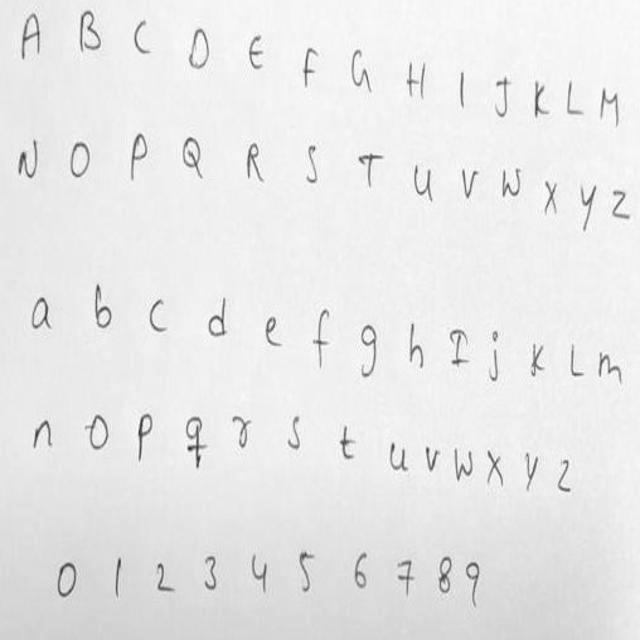 A B C D E F G H I J K L M
N O P Q R S T U V W X Y Z
a b c d e f g h I j k L m
n o p q r s t u v w x y z
0 1 2 3 4 5 6 7 8 9